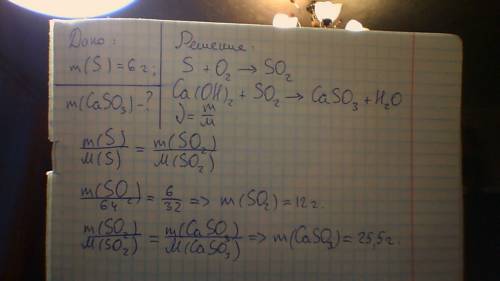 Дано:
m(S) = 6 г;
m(CaSO₃) - ?
Решение:
S + O₂ → SO₂
Ca(OH)₂ + SO₂ → CaSO₃ + H₂O
ν = m/M
m(S)/M(S) = m(SO₂)/M(SO₂)
m(SO₂)/64 = 6/32 => m(SO₂) = 12 г.
m(SO₂)/M(SO₂) = m(CaSO₃)/M(CaSO₃) => m(CaSO₃) = 25,5 г.